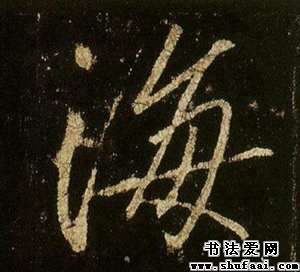 海
书法爱网
www.shufaai.com